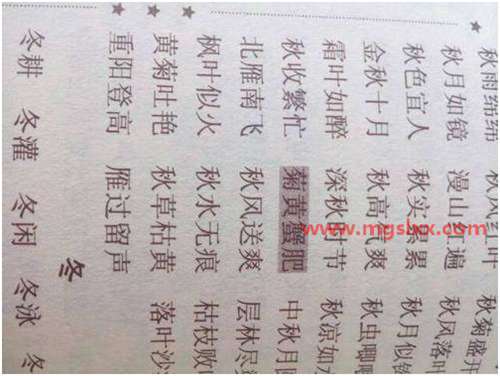 秋雨绵绵 秋风红叶 秋菊盛开
秋月如镜 漫山红遍 秋风落叶
秋色宜人 秋实累累 秋月似
金秋十月 秋高气爽 秋虫唧唧
霜叶如醉 深秋时节 秋凉如
秋收繁忙 菊黄蟹肥 中秋月
北雁南飞 秋风送爽 层林尽
枫叶似火 秋水无痕 枯枝败
黄菊吐艳 秋草枯黄 落叶沙
重阳登高 雁过留声
冬
冬耕 冬灌 冬闲 冬泳 冬
www.mgsbxx.com